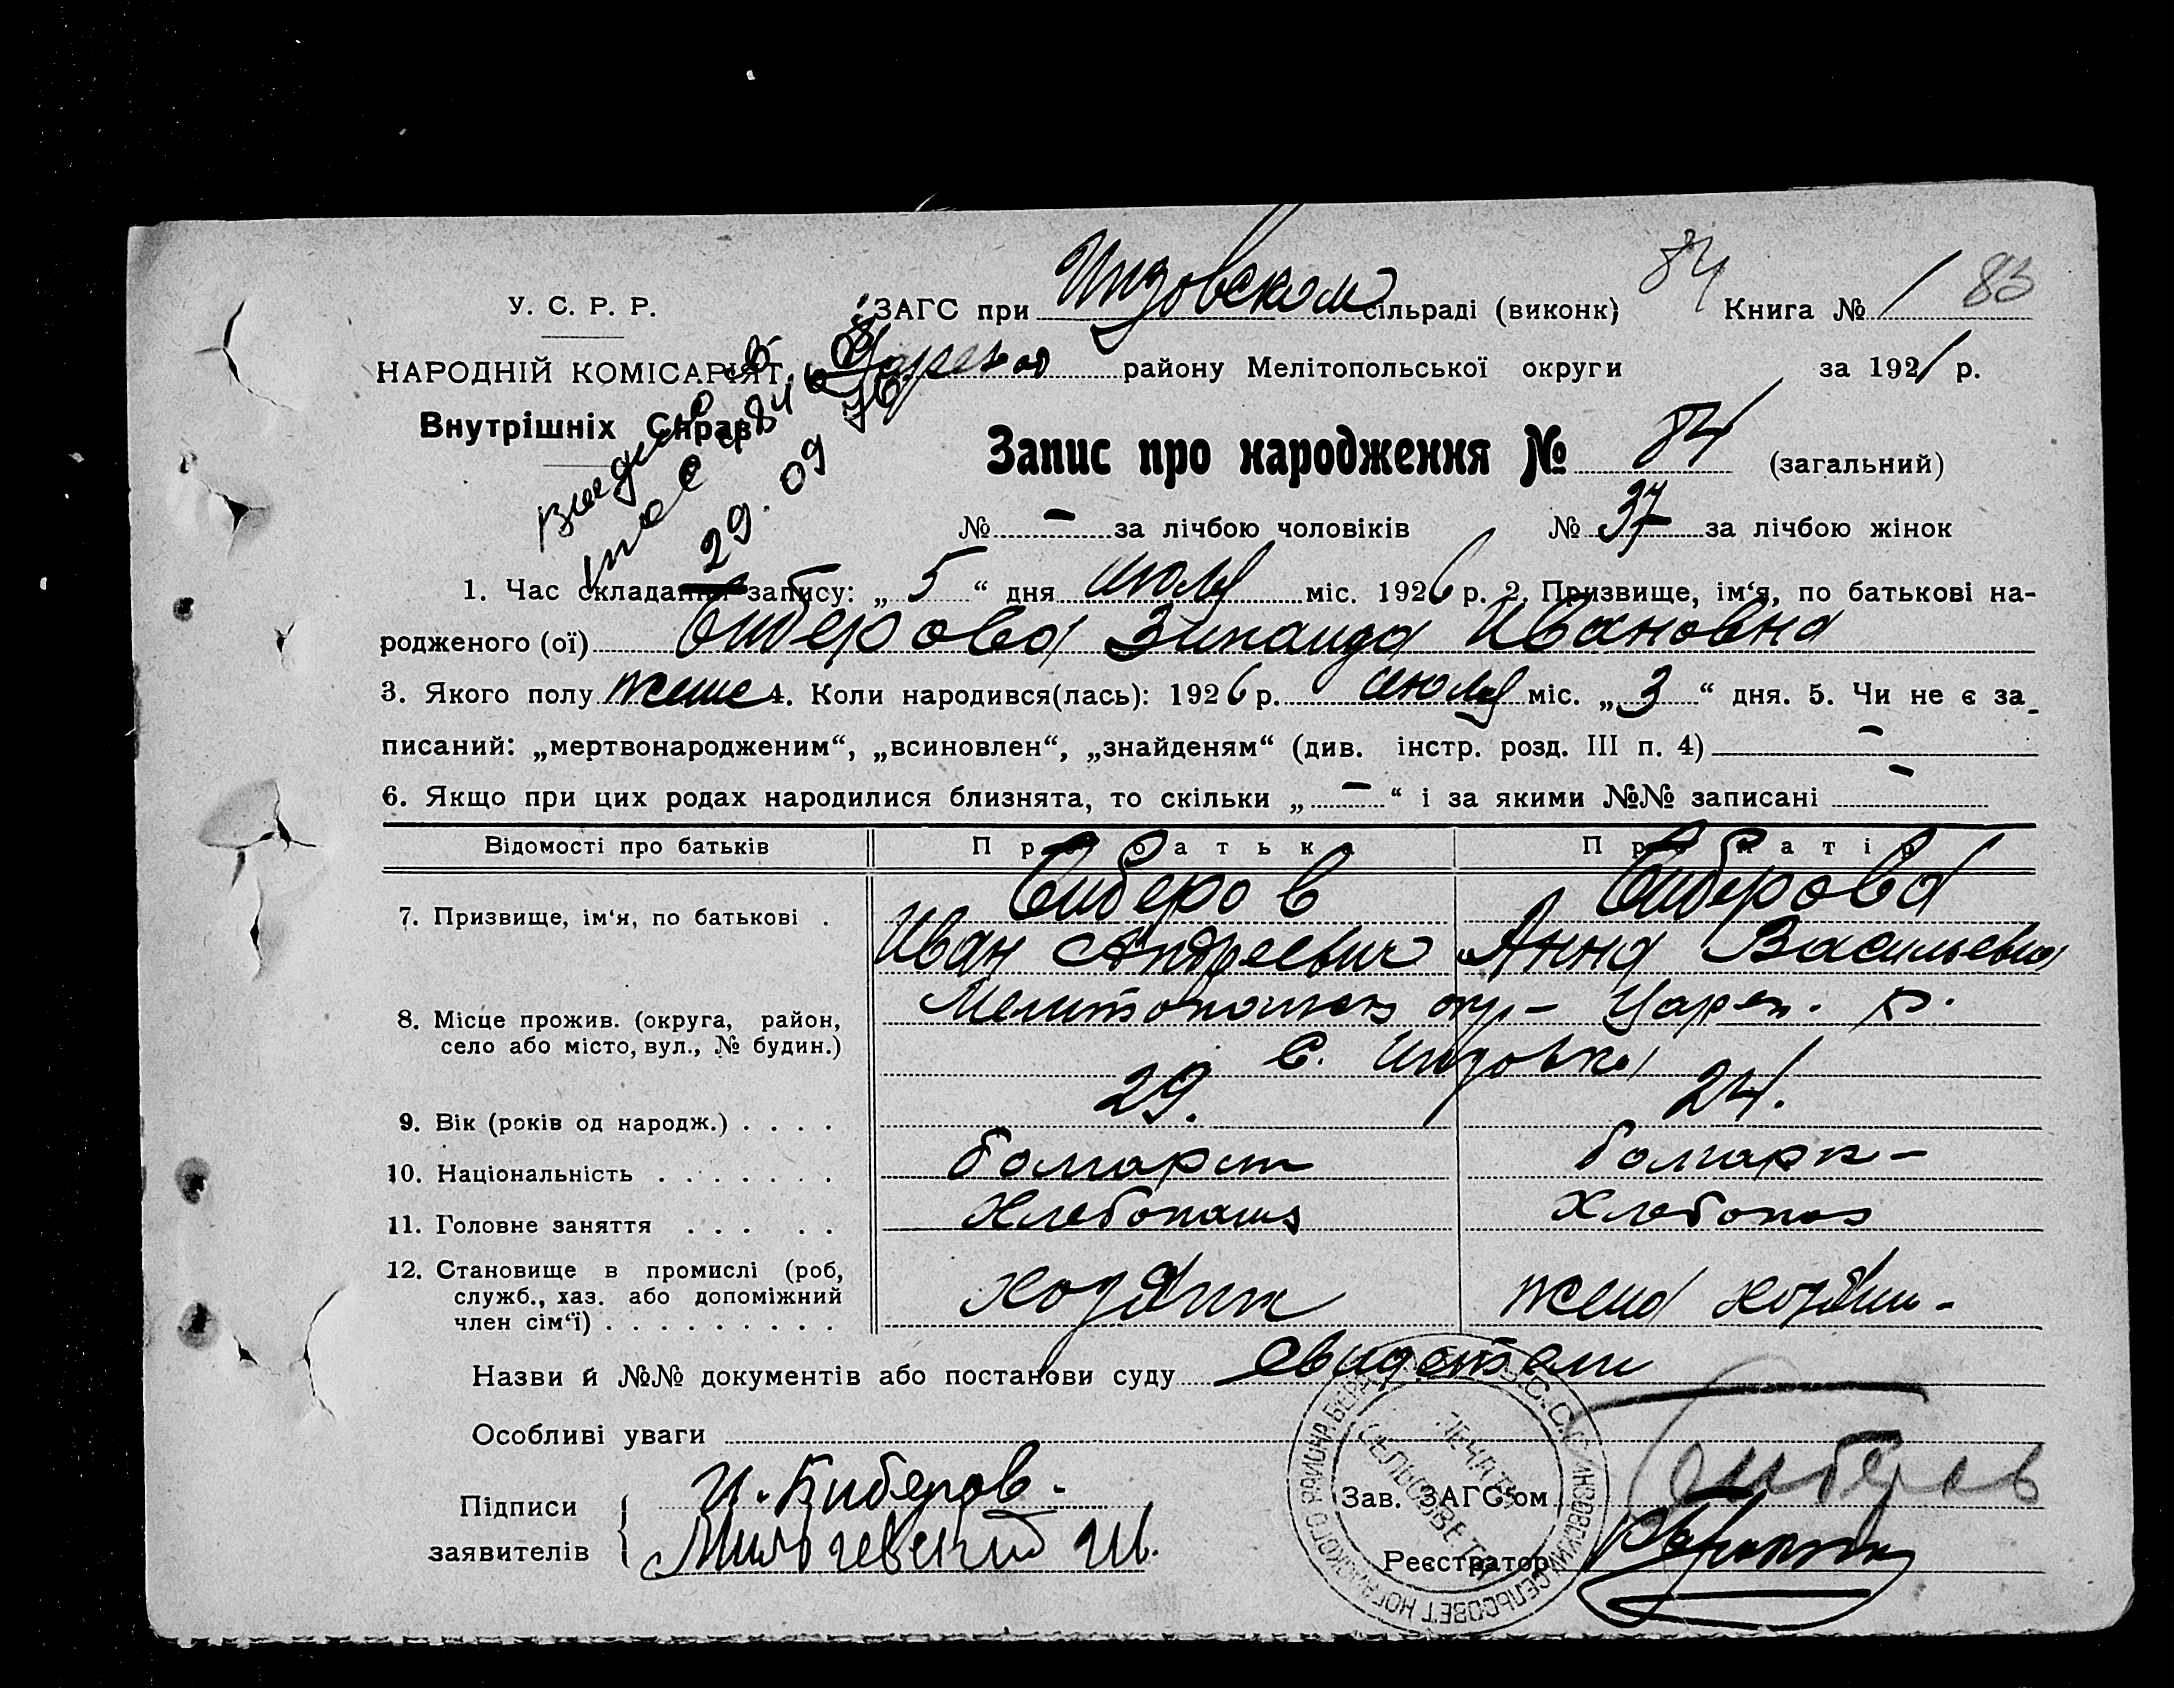 84 83
У. С. Р. Р. ЗАГС при Инзовском сільраді (виконк) Книга № 1
НАРОДНІЙ КОМІСАРІЯТ району Мелітопольської округи за 1926 р.
Внутрішніх Справ
29. 09 76
Запис про народження № 84 (загальний)
№ – за лічбою чоловіків № 37 за лічбою жінок
1. Час складання запису: „ 5 “ дня июля міс. 1926 р. 2. Призвище, ім‘я, по батькові на-
родженого (ої) Киберова Зинаида Ивановна
3. Якого полу женс 4. Коли народився(лась): 1926 р. июля міс. „ 3 “ дня. 5. Чи не є за-
писаний: „мертвонародженим“, „всиновлен“, „знайденям“ (див. інстр. розд. III п. 4) –
6. Якщо при цих родах народилися близнята, то скільки „ – “ і за якими №№ записані –
Відомості про батьків Про батька Про матір
7. Призвище, ім‘я, по батькові . Киберов Киберова
Иван Андреевич Анна Васильевна
8. Місце прожив. (округа, район, Мелитопольск окр – Царев. р.
село або місто, вул., № будин.) с. Инзовка
9. Вік (років од народж.) . . . . 29. 24.
10. Національність . . . . . . . болгарин болгарк –
11. Головне заняття . . . . . Хлебопаш Хлебопаш
12. Становище в промислі (роб, хозяин жена хозяин –
служб., хаз. або допоміжний
член сім‘ї) . . . . . . . . .
Назви й №№ документів або постанови суду свидетели
Особливі уваги
Підписи И. Киберов.
заявителів
Зав. ЗАГС‘ом Киберов
Реєстратор
ПЕЧАТЬ
СЕЛЬСОВЕТА